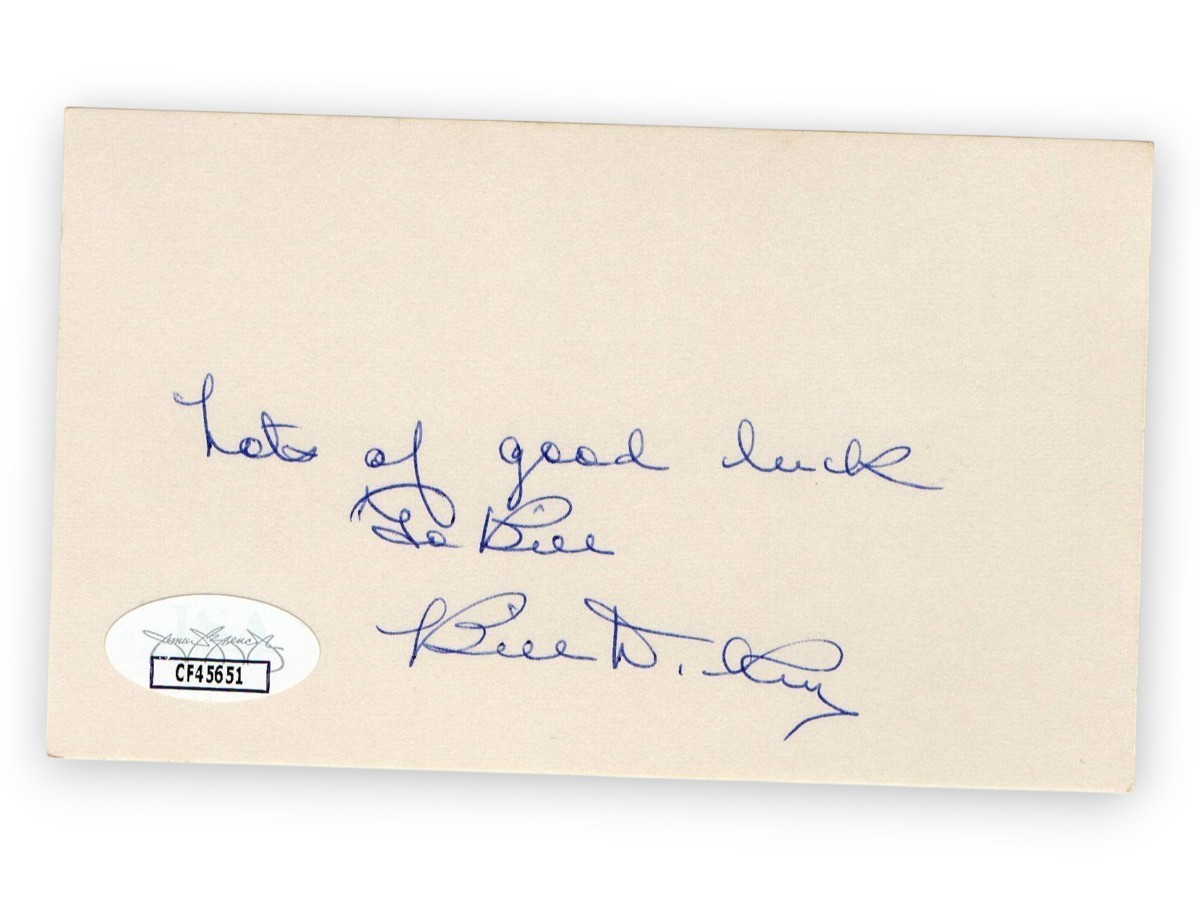 Lots of good luck
To Bill
Bill
JSA
CF45651